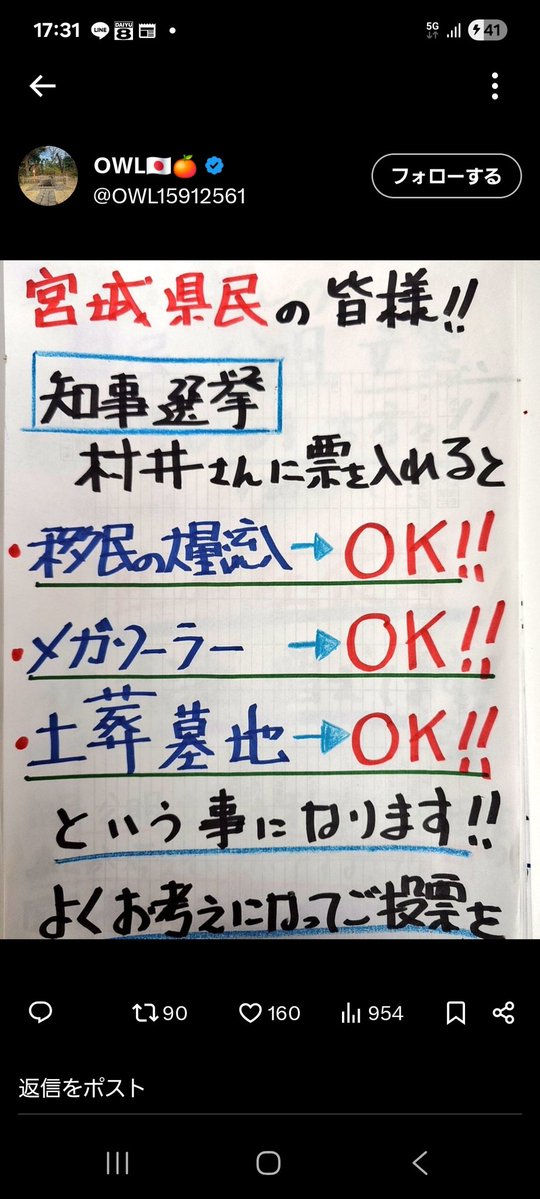 17:31 LINE DAIYU 8 5G 41
OWL🇯🇵🍊
@OWL15912561
フォローする
宮城県民の皆様!!
知事選挙
村井さんに票を入れると
・移民の大量流入→OK!!
・メガソーラー→OK!!
・土葬墓地→OK!!
という事になります!!
よくお考えになってご投票を
90 160 954
返信をポスト